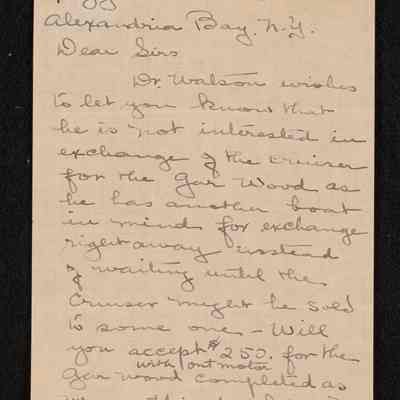 Alexandria Bay, N.Y.
Dear Sirs
Dr. Watson wishes
to let you know that
he is not interested in
exchange of the cruiser
for the Gar Wood as
he has another boat
in mind for exchange
right away instead
of waiting until the
Cruiser might be sold
to some one - Will
you accept $250. for the
with out motor
Gar Wood completed as